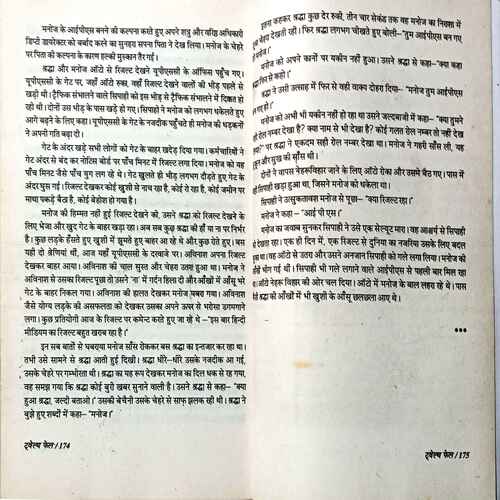 मनोज के आईपीएस बनने की कल्पना करते हुए अपने शत्रु और वरिष्ठ अधिकारी
डिप्टी डायरेक्टर को बर्बाद करने का सुनहरा सपना पिता ने देख लिया। मनोज के चेहरे
पर पिता की कल्पना के कारण हल्की मुस्कान तैर गई।
श्रद्धा और मनोज ऑटो से रिजल्ट देखने यूपीएससी के ऑफिस पहुँच गए।
यूपीएससी के गेट पर, जहाँ ऑटो रुका, वहाँ रिजल्ट देखने वालों की भीड़ पहले से
खड़ी थी। ट्रैफिक संभालने वाले सिपाही को इस भीड़ से ट्रैफिक संभालने में दिक्कत हो
रही थी। दोनों उस भीड़ के पास खड़े हो गए। सिपाही ने मनोज को लगभग धकेलते हुए
आगे बढ़ने के लिए कहा। यूपीएससी के गेट के नजदीक पहुँचते ही मनोज की धड़कनों
ने अपनी गति बढ़ा दी।
गेट के अंदर खड़े सभी लोगों को गेट के बाहर खदेड़ दिया गया। कर्मचारियों ने
गेट अंदर से बंद कर नोटिस बोर्ड पर पाँच मिनट में रिजल्ट लगा दिया। मनोज को यह
पाँच मिनट जैसे पाँच युग लग रहे थे। गेट खुलते ही भीड़ लगभग दौड़ते हुए गेट के
अंदर घुस गई। रिजल्ट देखकर कोई खुशी से नाच रहा है, कोई रो रहा है, कोई जमीन पर
माथा पकड़े बैठा है, कोई बेहोश हो गया है।
मनोज की हिम्मत नहीं हुई रिजल्ट देखने की, उसने श्रद्धा को रिजल्ट देखने के
लिए भेजा और खुद गेट के बाहर खड़ा रहा। अब सब कुछ श्रद्धा की हाँ या ना पर निर्भर
है। कुछ लड़के हँसते हुए खुशी में झूमते हुए बाहर आ रहे थे और कुछ रोते हुए। बस
यही दो श्रेणियां थीं, आज यहाँ यूपीएससी के दरवाजे पर। अविनाश अपना रिजल्ट
देखकर बाहर आया। अविनाश की चाल सुस्त और चेहरा उतरा हुआ था। मनोज ने
अविनाश से उसका रिजल्ट पूछा तो उसने 'ना' में गर्दन हिला दी और आँखों में आँसू भरे
गेट के बाहर निकल गया। अविनाश की हालत देखकर मनोज घबरा गया। अविनाश
जैसे योग्य लड़के की असफलता को देखकर उसका अपने ऊपर से भरोसा डगमगाने
लगा। कुछ प्रतियोगी आज के रिजल्ट पर कमेन्ट करते हुए जा रहे थे –"इस बार हिन्दी
मीडियम का रिजल्ट बहुत खराब रहा है।"
इन सब बातों से घबराया मनोज साँस रोककर बस श्रद्धा का इन्तजार कर रहा था।
तभी उसे सामने से श्रद्धा आती हुई दिखी। श्रद्धा धीरे-धीरे उसके नजदीक आ गई,
उसके चेहरे पर गम्भीरता थी। श्रद्धा का यह रूप देखकर मनोज का दिल धक से रह गया,
वह समझ गया कि श्रद्धा कोई बुरी खबर सुनाने वाली है। उसने श्रद्धा से कहा– "क्या
हुआ श्रद्धा, जल्दी बताओ।" उसकी बेचैनी उसके चेहरे से साफ झलक रही थी। श्रद्धा ने
बुझे हुए शब्दों में कहा– "मनोज।"
ट्वेल्थ फेल / 174
इतना कहकर श्रद्धा कुछ देर रुकी, तीन चार सेकंड तक वह मनोज का निराशा में
चेहरा देखती रही। फिर श्रद्धा लगभग चीखते हुए बोली–"तुम आईपीएस बन गए
मनोज को अपने कानों पर यकीन नहीं हुआ। उसने श्रद्धा से कहा– "क्या कहा
फिर से कहो।"
श्रद्धा ने उसी उत्साह में फिर से वही वाक्य दोहरा दिया– "मनोज तुम आईपीएस
गए हो।"
मनोज को अभी भी यकीन नहीं हो रहा था उसने जल्दबाजी में कहा– "क्या तुमने
ही रोल नम्बर देखा है? क्या नाम से भी देखा है? कोई गलत रोल नम्बर तो नहीं देख
पर श्रद्धा ने एकदम सही रोल नम्बर देखा था। मनोज ने गहरी साँस ली, यह
सुकून और सुख की साँस थी।
दोनों ने वापस नेहरूविहार जाने के लिए ऑटो रोका और उसमें बैठ गए। पास में
ही सिपाही खड़ा हुआ था, जिसने मनोज को धकेला था।
सिपाही ने उत्सुकतावश मनोज से पूछा– "क्या रिजल्ट रहा।"
मनोज ने कहा – "आई पी एस।"
मनोज का जवाब सुनकर सिपाही ने उसे एक सेल्यूट मारा। वह आश्चर्य से सिपाही
को देखता रहा। एक ही दिन में, एक रिजल्ट से दुनिया का नजरिया उसके लिए बदल
था। वह ऑटो से उतरा और उसने अनजान सिपाही को गले लगा लिया। मनोज की
आँखें भीग गई थीं। सिपाही भी गले लगाने वाले आईपीएस से पहली बार मिल रहा
था। ऑटो नेहरू विहार की ओर चल दिया। ऑटो में मनोज के बाल लहरा रहे थे। पास
बैठी श्रद्धा की आँखों में भी खुशी के आँसू छलछला आए थे।
●●●
ट्वेल्थ फेल / 175